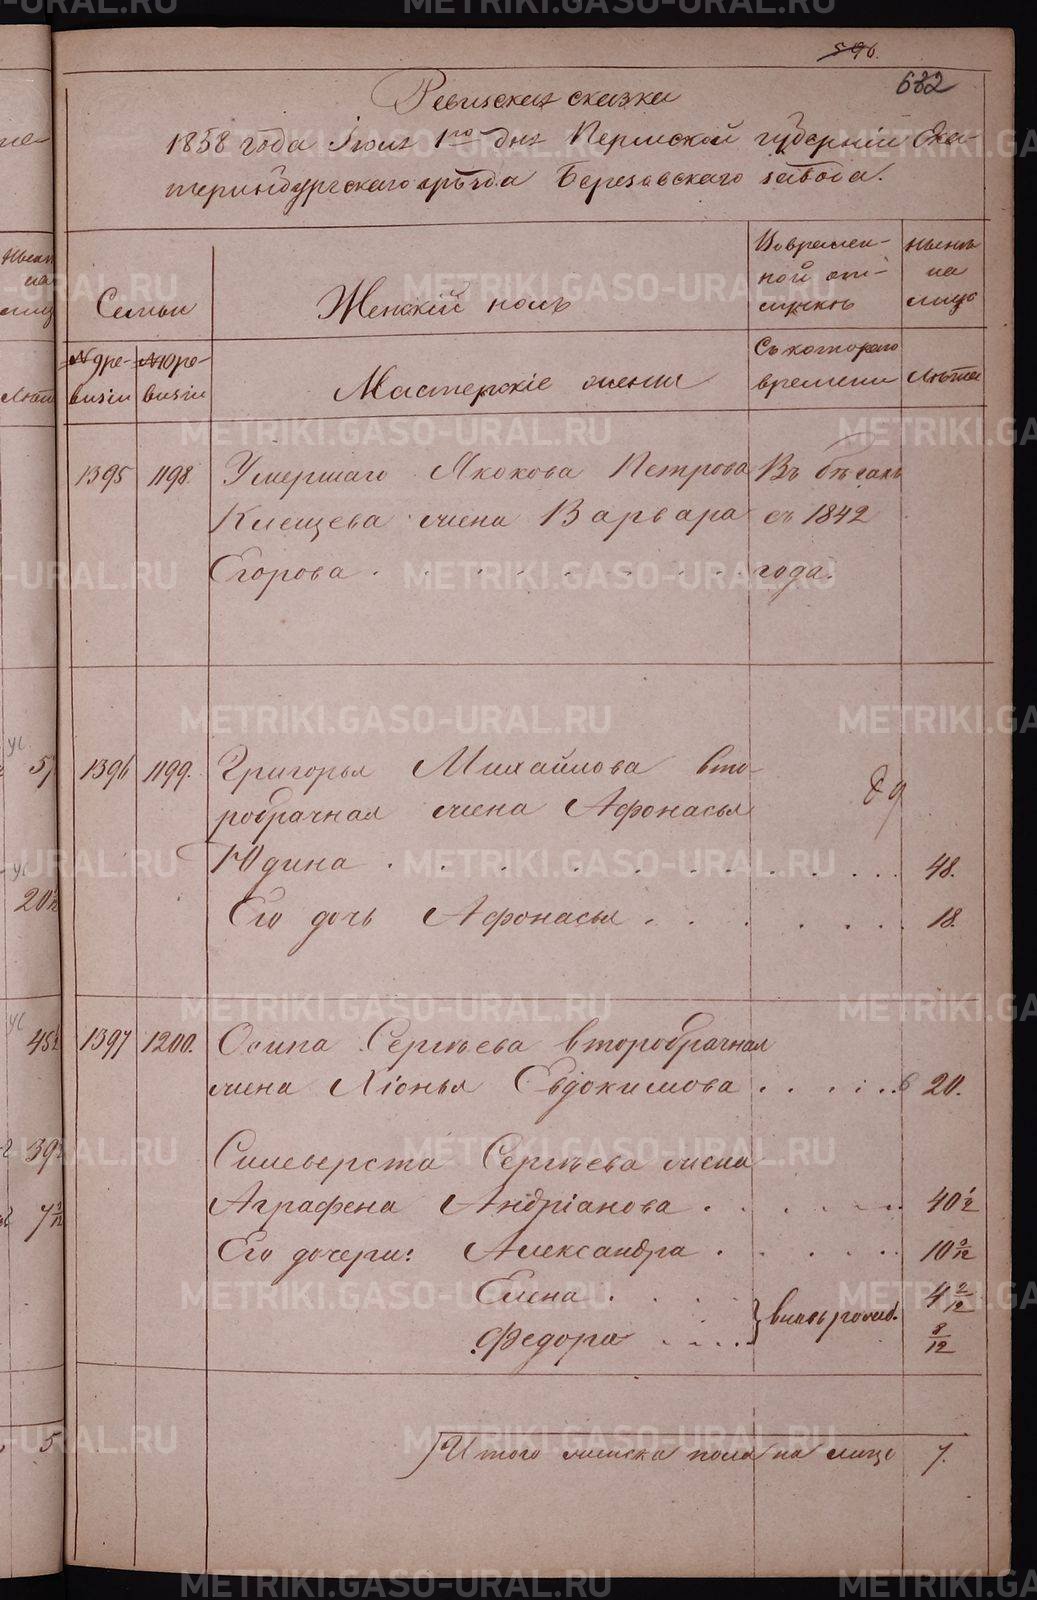 596.
682
Ревизская сказка
1858 года Июля 1го дня Пермской губернии Ека-
теринбургскаго уѣзда Березовскаго завода.
Семьи
Женскій полъ
Во времен-
ной от-
лучкѣ
Нынѣ
на
лицо
№ 9 ре-
визіи
№ 10 ре-
визіи
Мастерскіе жены
Съ котораго
времени
Лѣта
1395 1198 Умершаго Якокова Петрова Въ бѣгахъ
Клещева жена Варвара съ 1842
Егорова . . . . . . . . . . года.
1396 1199. Григорья Михайлова вто-
робрачная жена Афонасья
Юдина . . . . . . . . . . 48.
Его дочь Афонасья . . . . . . 18.
1397 1200. Осипа Сергѣева второбрачная
жена Хіонья Евдокимова . . . . . 20.
Сильверста Сергѣева жена
Аграфена Андріанова . . . . . . 40 1/2
Его дочери: Александра . . . . . 10 3/12
Елена . . . . 4 2/12
Федора . . . . } вновь рожд. 8/12
Итого женска пола на лицо 7.
METRIKI.GASO-URAL.RU